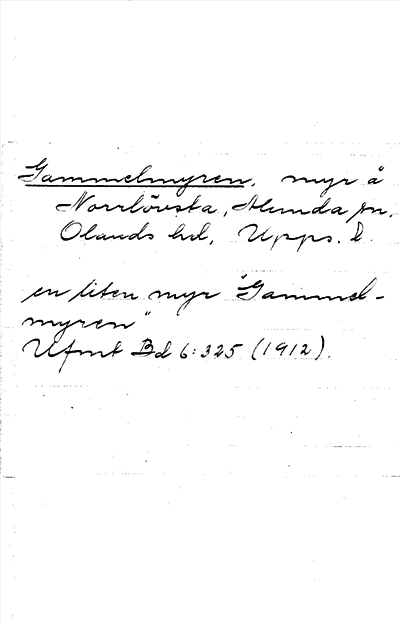 Gammelmyren, myr å
Norrlövsta, Alunda sn,
Olands hd, Upps. l.
en liten myr "Gammel-
myren"
Ufmt Bd 6:325 (1912).